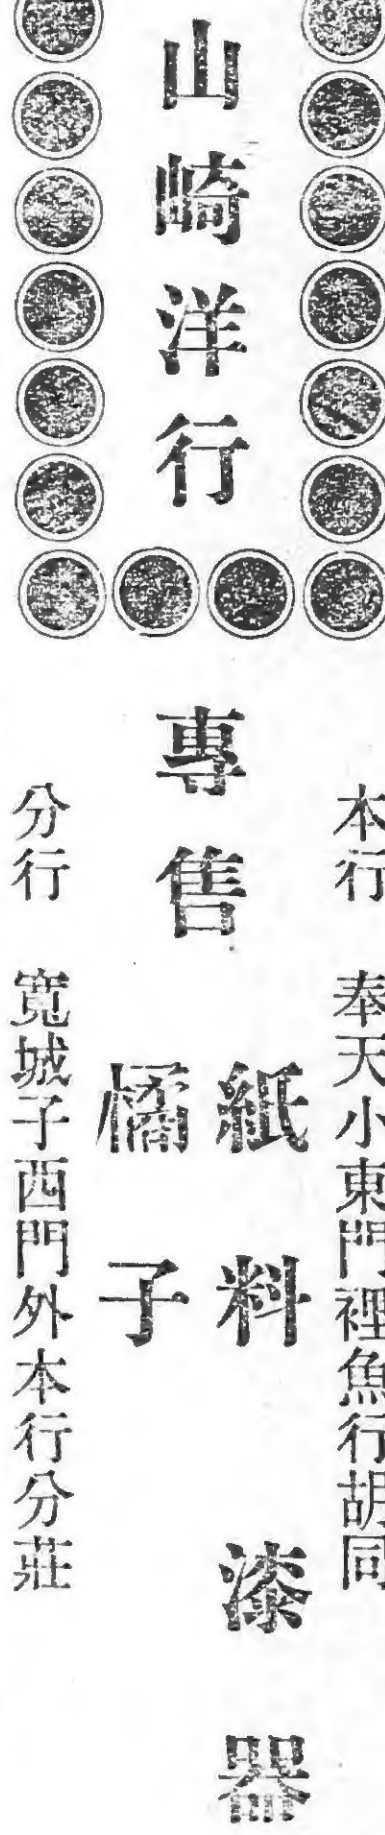 山崎洋行
本行 奉天小東門裡魚行胡同
專售
紙料 漆器
橘子
分行 寬城子西門外本行分莊